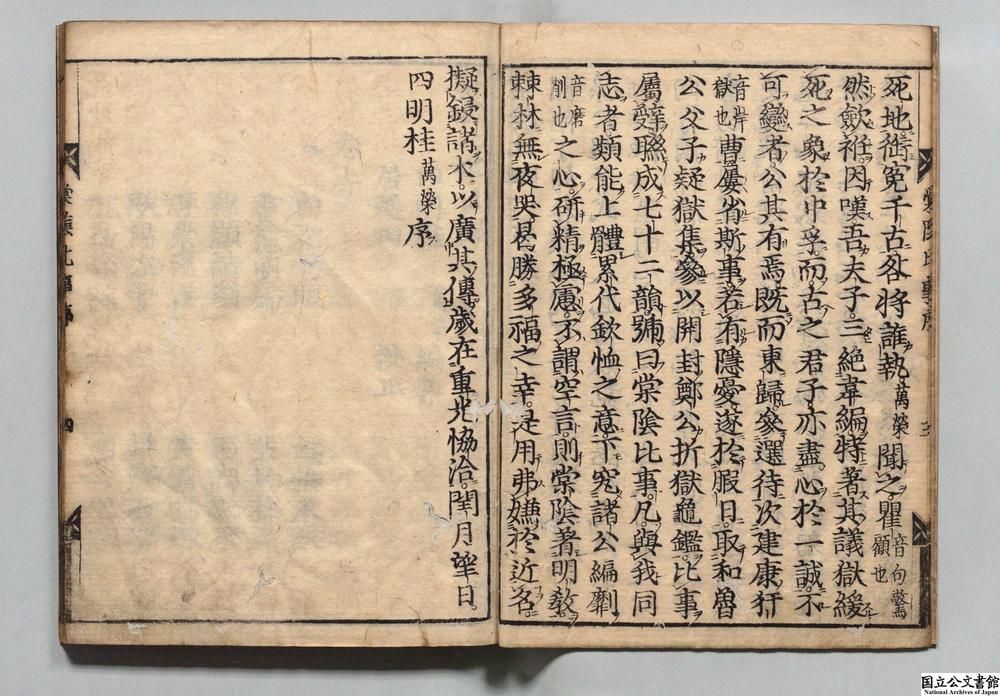 死地銜冤千古咎將誰執萬榮聞之瞿音句驚顧也
然歛袵因嘆吾夫子三絶韋編特著其議獄緩
死之象於中孚而古之君子亦盡心於一誠不
可變者公其有焉既而東歸參選待次建康犴
音岸獄也曹屢省斯事若有隱憂遂於暇日取和魯
公父子疑獄集參以開封鄭公折獄龜鑑比事
屬辭聯成七十二韻號曰棠陰比事凡與我同
志者類能上體累代欽恤之意下究諸公編劘
音磨削也之心研精極慮不謂空言則棠陰著明敎
棘林無夜哭曷勝多福之幸是用弗嫌於近名
擬鋟諸木以廣其傳歲在重光協洽閏月望日
四明桂萬榮序
棠陰比事序
三
棠陰比事序
四
国立公文書館
National Archives of Japan